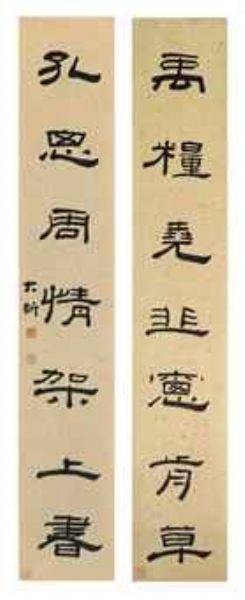 禹糧堯韭窻前草
孔思周情架上書
大昕